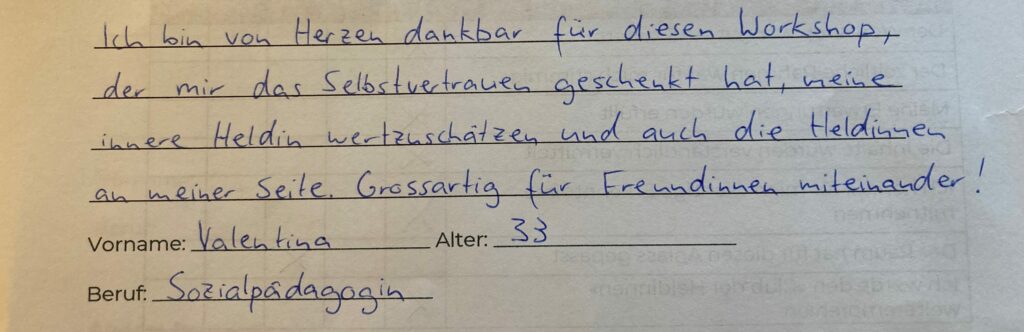 Ich bin von Herzen dankbar für diesen Workshop,
der mir das Selbstvertrauen geschenkt hat, meine
innere Heldin wertzuschätzen und auch die Heldinnen
an meiner Seite. Grossartig für Freundinnen miteinander!
Vorname: Valentina Alter: 33
Beruf: Sozialpädagogin